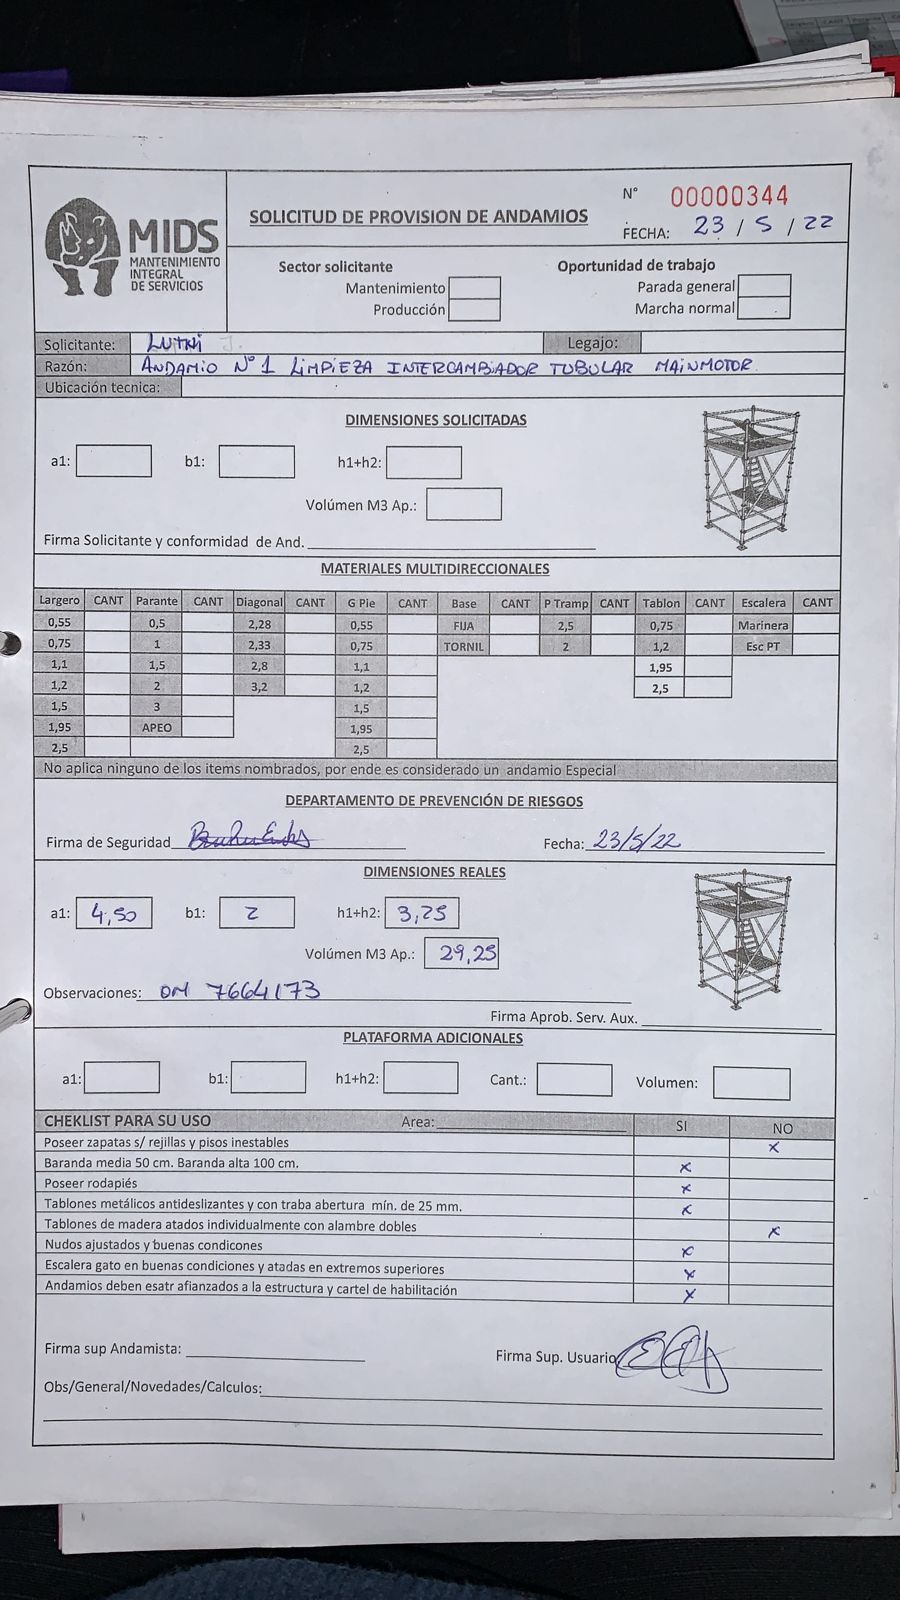 MIDS
MANTENIMIENTO
INTEGRAL
DE SERVICIOS
SOLICITUD DE PROVISION DE ANDAMIOS
N° 00000344
FECHA: 23 / 5 / 22
Sector solicitante
Mantenimiento
Producción
Oportunidad de trabajo
Parada general
Marcha normal
Solicitante: J. Legajo:
Razón: ANDAMIO N°1 LIMPIEZA INTERCAMBIADOR TUBULAR MAINMOTOR
Ubicación tecnica:
DIMENSIONES SOLICITADAS
a1: b1: h1+h2:
Volúmen M3 Ap.:
Firma Solicitante y conformidad de And.
MATERIALES MULTIDIRECCIONALES
Largero CANT Parante CANT Diagonal CANT G Pie CANT Base CANT P Tramp CANT Tablon CANT Escalera CANT
0,55 0,5 2,28 0,55 FIJA 2,5 0,75 Marinera
0,75 1 2,33 0,75 TORNIL 2 1,2 Esc PT
1,1 1,5 2,8 1,1 1,95
1,2 2 3,2 1,2 2,5
1,5 3 1,5
1,95 APEO 1,95
2,5 2,5
No aplica ninguno de los items nombrados, por ende es considerado un andamio Especial
DEPARTAMENTO DE PREVENCIÓN DE RIESGOS
Firma de Seguridad Fecha: 23/5/22
DIMENSIONES REALES
a1: 4,50 b1: 2 h1+h2: 3,25
Volúmen M3 Ap.: 29,25
Observaciones: OM 7664173
Firma Aprob. Serv. Aux.
PLATAFORMA ADICIONALES
a1: b1: h1+h2: Cant.: Volumen:
CHEKLIST PARA SU USO Area: SI NO
Poseer zapatas s/ rejillas y pisos inestables x
Baranda media 50 cm. Baranda alta 100 cm. x
Poseer rodapiés x
Tablones metálicos antideslizantes y con traba abertura mín. de 25 mm. x
Tablones de madera atados individualmente con alambre dobles x
Nudos ajustados y buenas condicones x
Escalera gato en buenas condiciones y atadas en extremos superiores x
Andamios deben esatr afianzados a la estructura y cartel de habilitación x
Firma sup Andamista:
Firma Sup. Usuario
Obs/General/Novedades/Calculos: